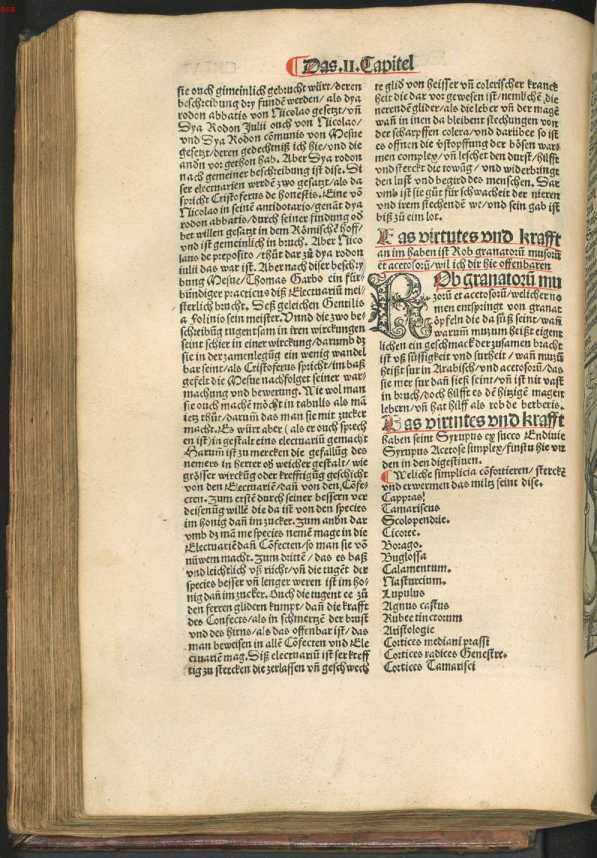 Das .II. Capitel
sie ouch gimeinlich gebrucht würt/deren
beschribung dry fundē werden/als dya
rodon abbatis von Nicolao gesetzt/vñ
Dya Rodon Julii ouch von Nicolao/
vnd Dya Rodon cōmunis von Mesue
gesetzt/deren gedechtniß ich hie/vnd die
andn vor gethon hab. Aber Dya rodon
nach gemeiner beschribung ist dise. Di
ser electuarien werdē zwo gesatzt/als da
spricht Cristoferus de honestis. Eine vō
Nicolao in seinē antidotario/genāt dya
rodon abbatis/durch seiner findung od
bet willen gesatzt in dem Römischē hoff/
vnd ist gemeinlich in bruch. Aber Nico
laus de preposito/thüt dar zů dya rodon
iulii das war ist. Aber nach diser beschry
bung Mesue/Thomas Garbo ein für/
bündiger practicus diß Electuariū mei/
sterlich brucht. Deß geleichen Gentilis
a Folinio sein meister. Vnnd die zwo be/
schribūg tugentsam in iren wirckungen
seint schier in einer wirckung/darumb dz
sie in der zamenlegūg ein wenig wandel
bar seint/als Cristoferus spricht/im baß
gefelt die Mesue nachfolger seiner war/
machung vnd bewerung. Wie wol man
sie ouch machē mōcht in tabulis als mā
ietz thůt/darum das man sie mit zucker
macht. Es würt aber (als er ouch sprech
en ist) in gestalt eins electuariū gemacht
Darum ist zů mercken die gefallūg des
nemers in herrer oß weicher gestalt/wie
grösser wirckūg oder krefftigūg geschicht
von den Electuariē/dañ von den Cōfe/
cten. Zum erstē durch seiner bessern ver
deisenūg willē die da ist von den species
im honig dañ im zucker. Zum andn dar
vmb dz mā me species nemē mage in die
Electuariē dañ Cōfecten/so man sie vō
nüwem macht. Zum dritten/das es baß
vnd leichtlich vß rücht/vñ die tugēt der
species besser vñ lenger weren ist im ho/
nig dañ im zucker. Ouch die tugent ee zů
den ferren glidern kumpt/dañ die krafft
des Confects/als in schmertzē der brust
vnd des hirns/als das offenbar ist/das
man beweisen in allē Cōfecten vnd Ele
ctuariē mag. Diß electuariū ist ser kreff
tig zů stercken die zerlassen vñ geschwech
te glid von heisser vñ colerischer kranck
heit die dar vor gewesen ist/nemlichē die
nerendē glider/als die leber vñ der mage
wañ in inen da bleibent stechungen von
der scharpffen colera/vnd darüber so ist
es offnen die vstopffung der bösen war/
men complex/vñ leschet den durst/hilfft
vnd sterckt die töwūg/vnd widerbringt
den lust vnd begird des menschen. Dar
vmb ist sie gůt für schwacheit der nieren
vnd irem stechenden we/vnd sein gab ist
biß zů eim lot.
Das virtutes vnd krafft
an im haben ist Rob granatorū musorū
et acetosorū/wil ich dir hie offenbaren
ROb granatorū mu
zorū et acetosorū/welicher no
men entspringt von granat
öpfeln die da süß seint wañ
warum muzum heißt eigent
lichen ein geschmack der zsamen bracht
ist vß süssigkeit vnd surheit/wañ muzū
heißt sur in Arabisch/vnd acetosorū/das
sie mer sur dañ sieß seint/vñ ist nit vast
in bruch/doch hilfft es dē hitzigē magen
lebern/vñ hat hilff als rob de berberis.
Das virtutes vnd krafft
haben seint Syrupus ex succo Endiuie
Syrupus Acetose simplex/finstu hie vor
den in den digestiuen.
Weliche simplicia cōfortieren/sterckē
vnd erwermen das miltz seint dise.
Cappras/
Tamariscus
Scolopendrie.
Cicoree.
Borago.
Buglossa
Calamentum.
Nasturcium.
Lupulus
Agnus castus
Rubee tinctorum
Aristologie
Cortices mediani frassi
Cortices radices Genestre.
Cortices Tamarisci